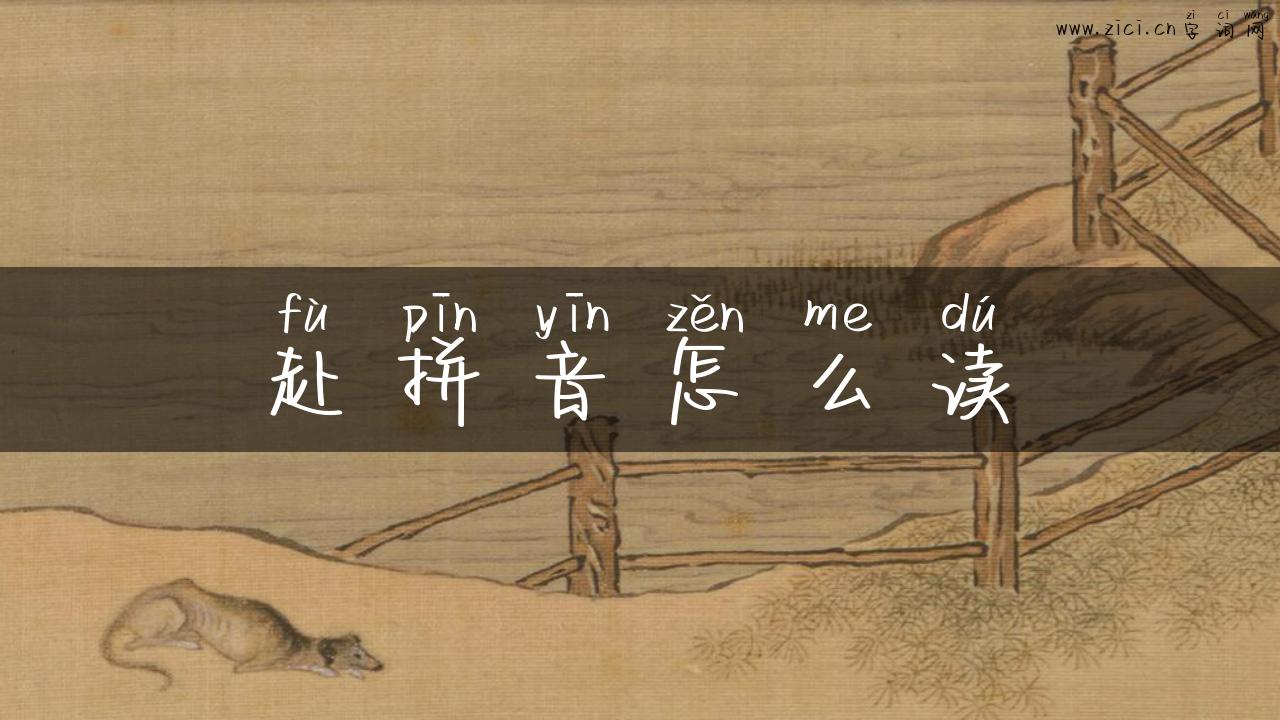 zi ci wang
www.zici.cn字词网
fù pīn yīn zěn me dú
赴拼音怎么读